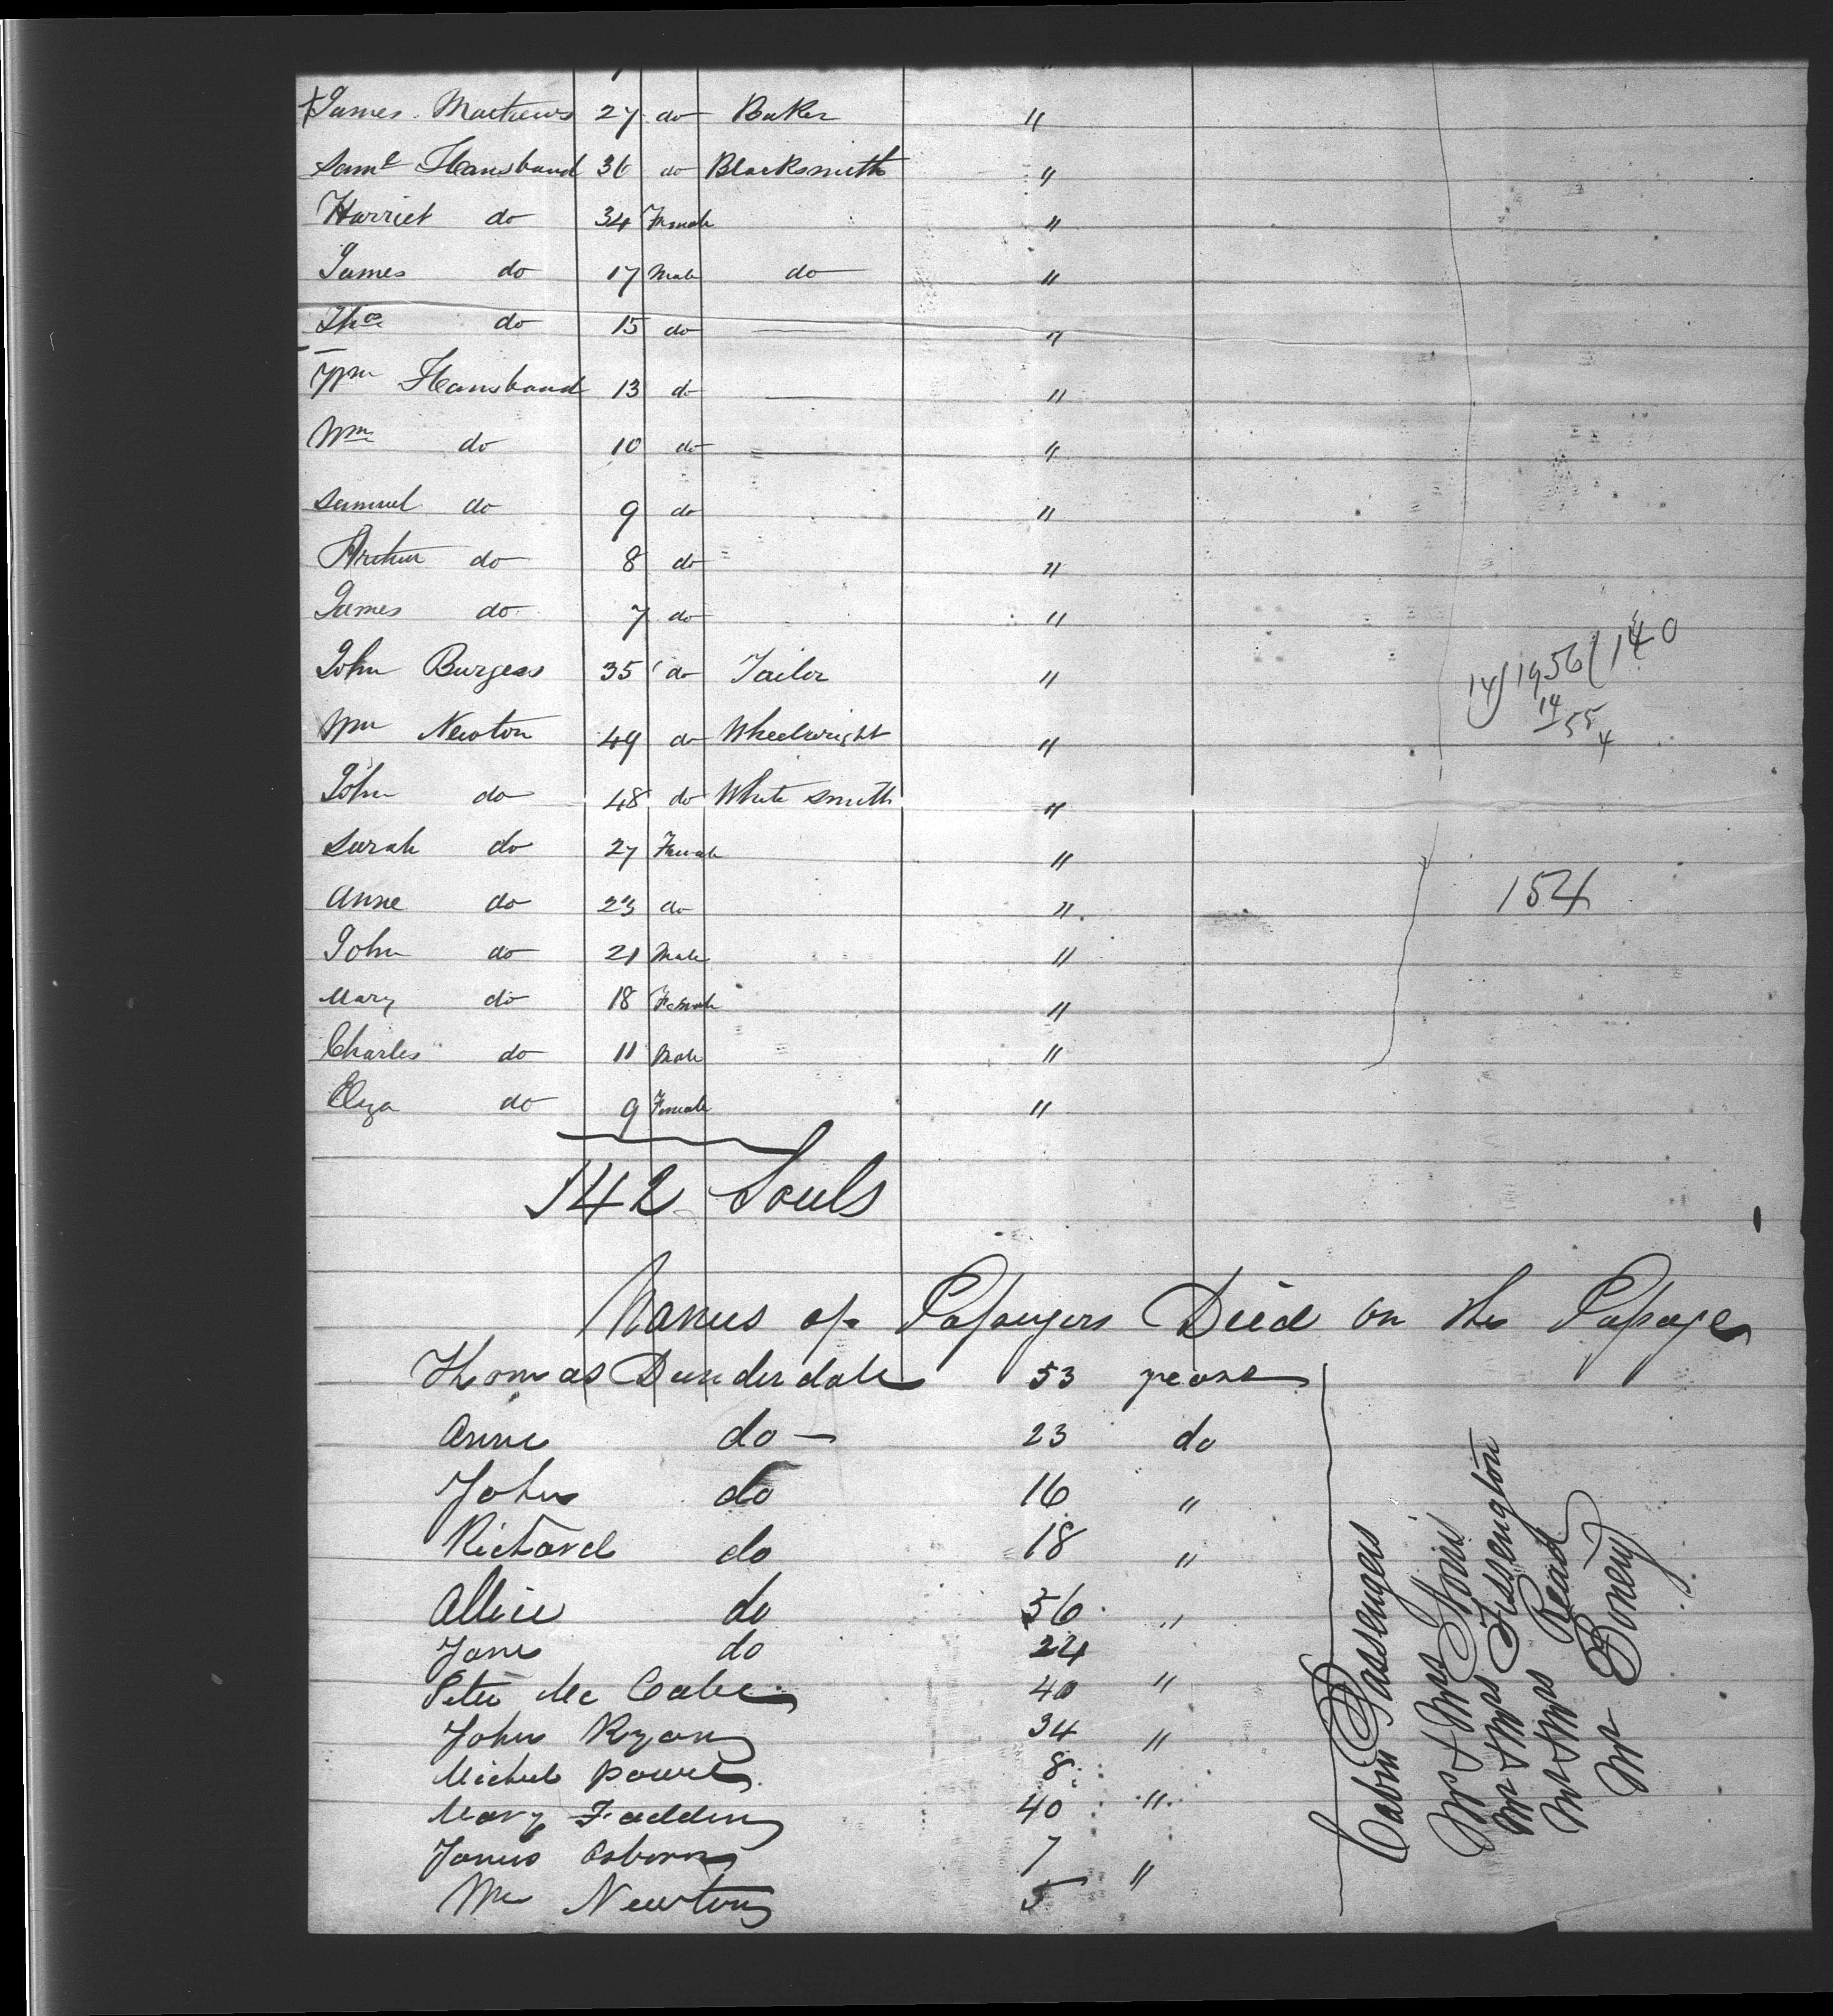 James Mathews 27 do Baker "
Saml Hansband 36 do Blacksmith "
Harriet do 34 Female "
James do 17 Male do "
Thos do 15 do "
Wm Hansband 13 do "
Wm do 10 do "
Samuel do 9 do "
Arthur do 8 do "
James do 7 do "
John Burgess 35 do Tailor "
Wm Newton 49 do Wheelwright "
John do 48 do White Smith "
Sarah do 27 Female "
Anne do 23 do "
John do 21 Male "
Mary do 18 Female "
Charles do 11 Male "
Eliza do 9 Female "
14) 1956 (140
14
55
4
154
142 Souls
Names of Passengers Died on the Passage
Thomas Dunderdale 53 years
Anne do 23 do
John do 16 "
Richard do 18 "
Allice do 56 "
Jane do 22
Peter Mc Cabe 40 "
John Ryan 34 "
Michel Powel 8
Mary Fadden 40 "
James Osborn 7 "
Wm Newton 5
Cabin Passengers
Mr & Mrs
Mr & Mrs Fissengton
Mr & Mrs Read
Mr Boney